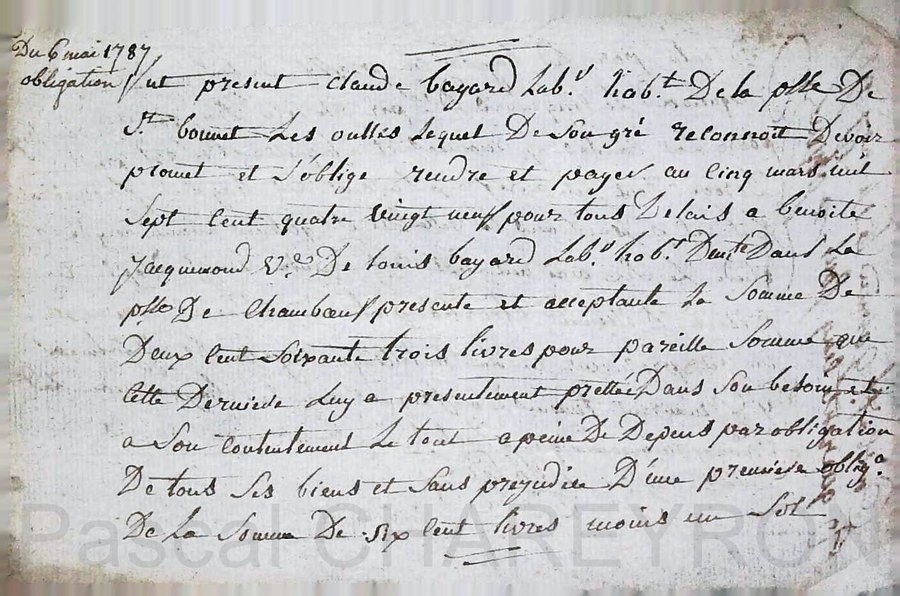 Du 6 mai 1787
obligation
fut present claude bayard Lab.r hab.t De la p.sse De
S.t bonnet Les oulles Lequel De Son gré reconnoit Devoir
promet et S'oblige rendre et payer au Cinq mars mil
Sept Cent quatre Vingt neuf pour tous Delais a benoite
Jacquemond V.e De Louis bayard Lab.r hab.t Dem.te Dans La
p.sse De Chambœuf presente et acceptante La Somme De
Deux Cent Soixante trois Livres pour pareille Somme que
Cette Derniere Luy a presentement prettée Dans Son besoin et
a Son Contentement Le tout a peine De Depens par obligation
De tous Ses biens et Sans prejudice D'une premiere oblig.on
De La Somme De Six Cent Livres moins un Sol
Pascal CHAREYRON